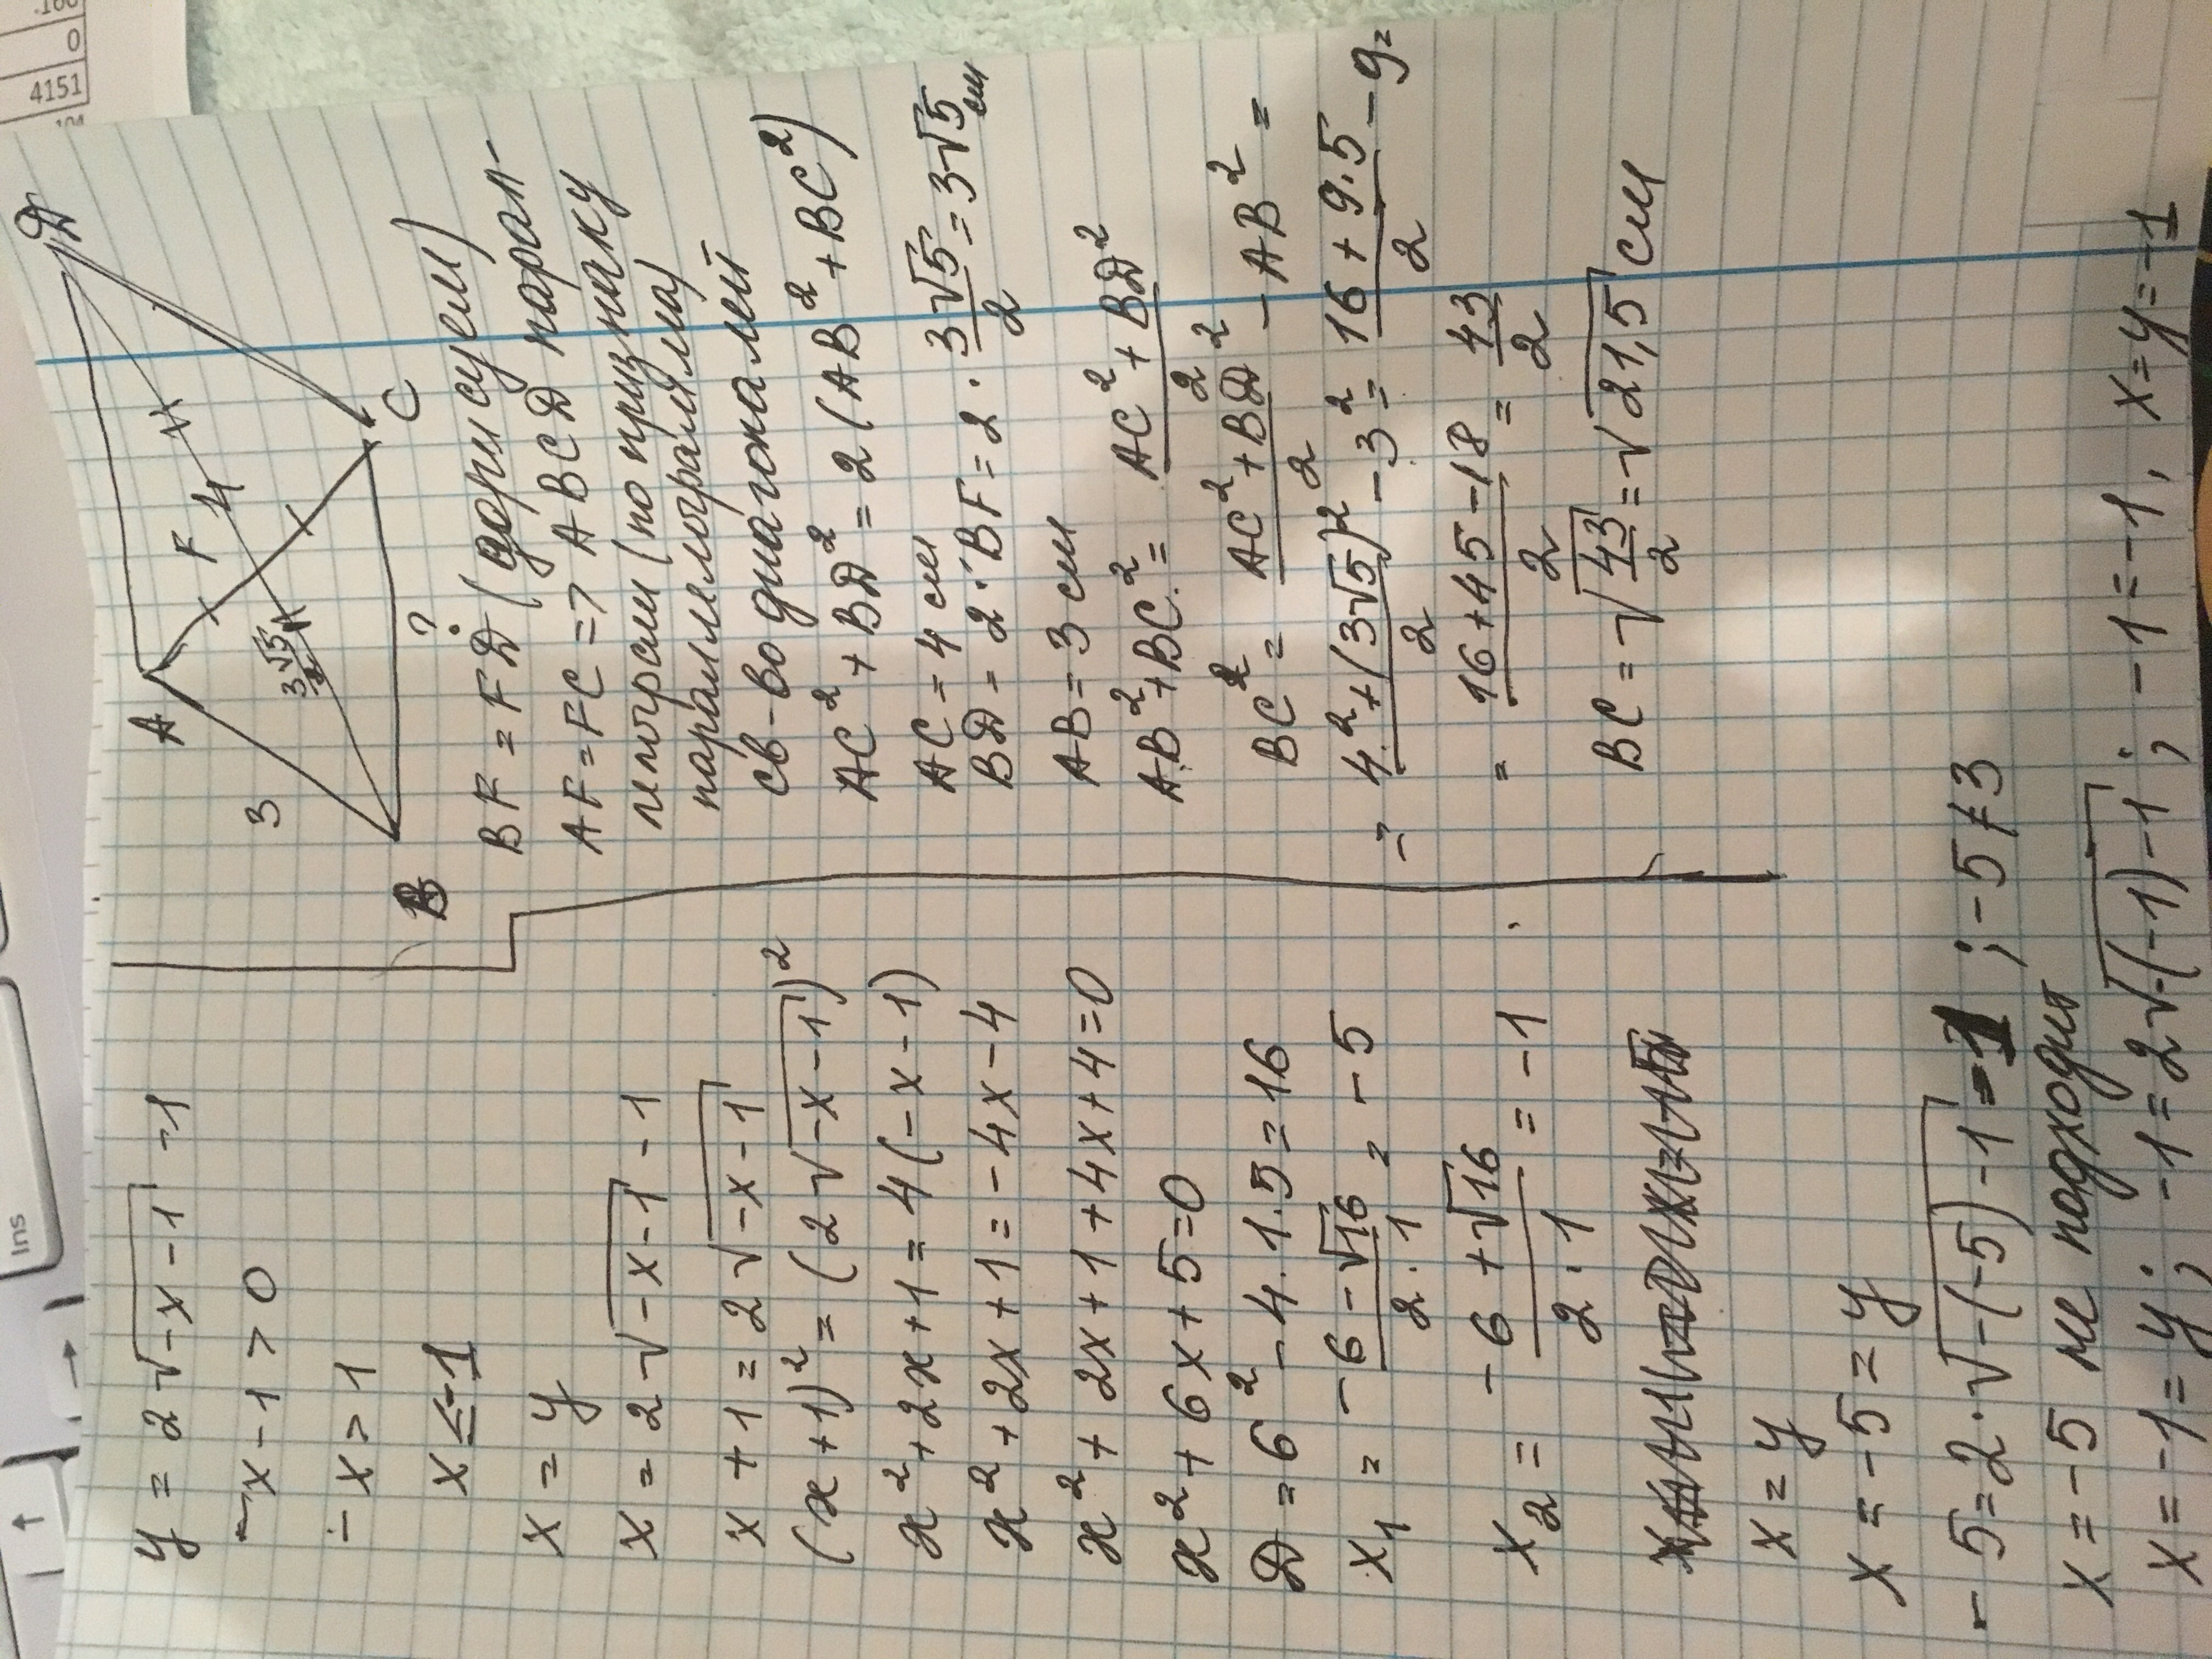 y = 2√-x-1 -1
-x-1 > 0
-x > 1
x ≤ -1
x = y
x = 2√-x-1 -1
x+1 = 2√-x-1
(x+1)² = (2√-x-1)²
x²+2x+1 = 4(-x-1)
x²+2x+1 = -4x-4
x²+2x+1+4x+4=0
x²+6x+5=0
Д = 6²-4·1·5=16
x₁ = (-6-√16)/(2·1) = -5
x₂ = (-6+√16)/(2·1) = -1
x = y
x = -5 = y
-5=2·√-(-5)-1 -1 ; -5≠3
x = -5 не подходит
x = -1 = y; -1=2√-(-1)-1 ; -1=-1, x=y=-1
A
F
Д
4
3
3√5/2
B
?
C
BF = FД (дорисуем)
AF = FC => ABCД парал-
лелограм (по признаку
параллелограмма)
св-во диагоналей
AC²+BД² = 2(AB²+BC²)
AC = 4 см
BД = 2·BF = 2·3√5/2 = 3√5 см
AB = 3 см
AB²+BC² = (AC²+BД²)/2
BC² = (AC²+BД²)/2 - AB² =
= (4²+(3√5)²)/2 - 3² = (16+9·5)/2 - 9=
= (16+45-18)/2 = 43/2
BC = √43/2 = √21,5 см
Ins
↑
→
.160
0
4151
104